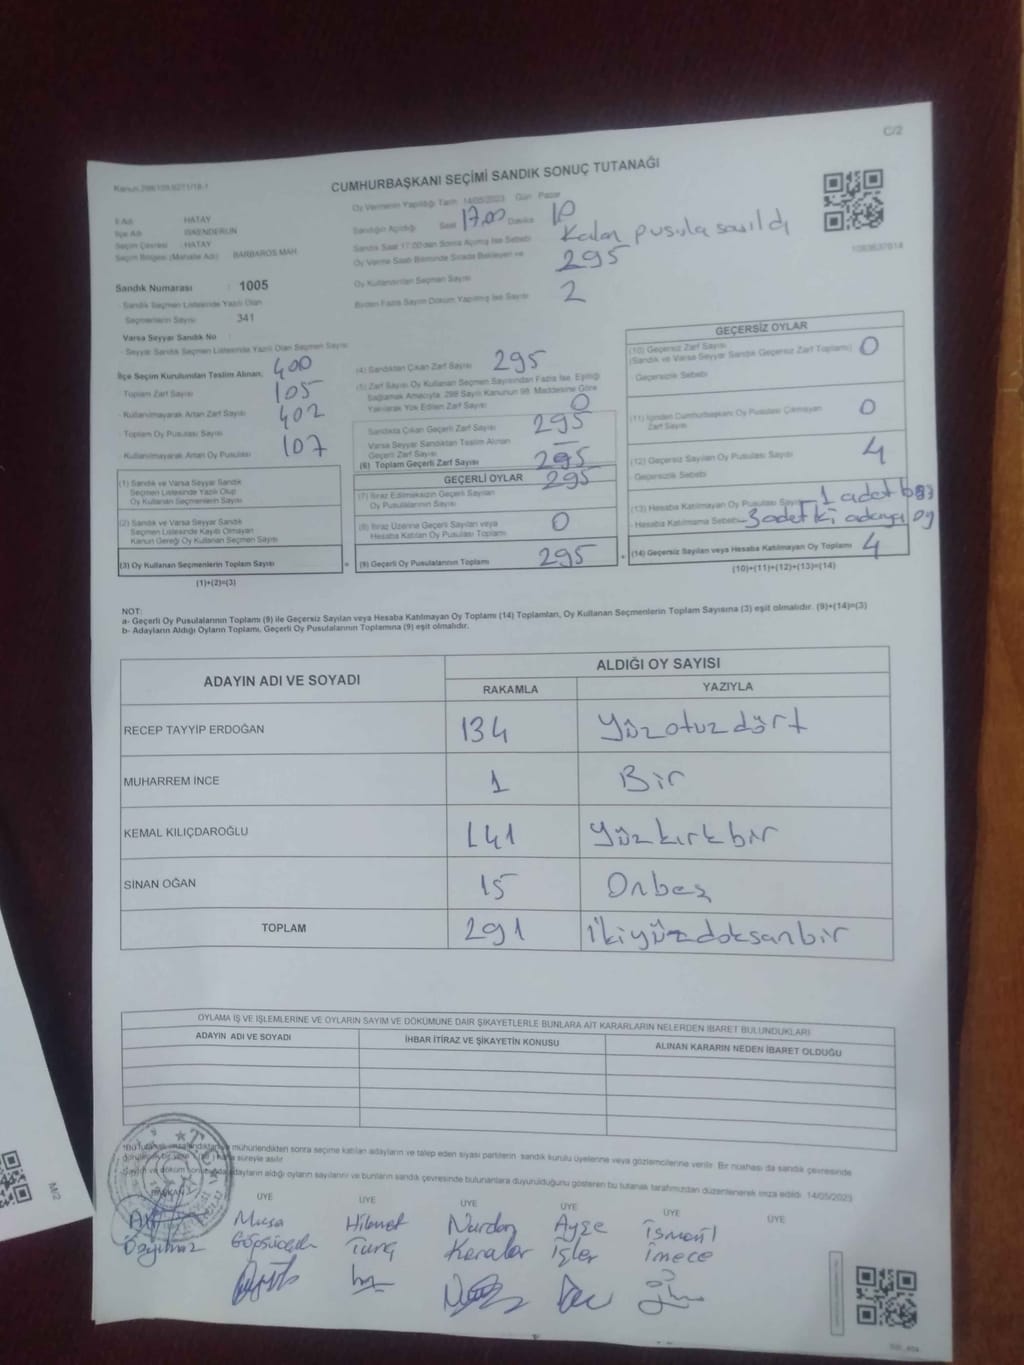 C/2
CUMHURBAŞKANI SEÇİMİ SANDIK SONUÇ TUTANAĞI
Oy Vermenin Yapıldığı Tarih 14/05/2023 Gün Pazar
İl Adı HATAY
İlçe Adı İSKENDERUN
Seçim Çevresi HATAY
Seçim Bölgesi (Mahalle Adı) BARBAROS MAH
Sandığın Açıldığı Saat 17.00 Dakika 10
Sandık Saat 17:00'den Sonra Açılmış İse Sebebi Kalan pusula sayıldı
Oy Verme Saati Bitiminde Sırada Bekleyen ve
Oy Kullandırılan Seçmen Sayısı 295
Birden Fazla Sayım Döküm Yapılmış İse Sayısı 2
Sandık Numarası : 1005
Sandık Seçmen Listesinde Yazılı Olan
Seçmenlerin Sayısı 341
Varsa Seyyar Sandık No :
Seyyar Sandık Seçmen Listesinde Yazılı Olan Seçmen Sayısı
İlçe Seçim Kurulundan Teslim Alınan; 400
Toplam Zarf Sayısı 105
Kullanılmayarak Artan Zarf Sayısı 402
Toplam Oy Pusulası Sayısı 107
Kullanılmayarak Artan Oy Pusulası
(1) Sandık ve Varsa Seyyar Sandık
Seçmen Listesinde Yazılı Olup
Oy Kullanan Seçmenlerin Sayısı
(2) Sandık ve Varsa Seyyar Sandık
Seçmen Listesinde Kayıtlı Olmayan
Kanun Gereği Oy Kullanan Seçmen Sayısı
(3) Oy Kullanan Seçmenlerin Toplam Sayısı
(1)+(2)=(3)
(4) Sandıktan Çıkan Zarf Sayısı 295
(5) Zarf Sayısı Oy Kullanan Seçmen Sayısından Fazla İse, Eşitliği
Sağlamak Amacıyla, 298 Sayılı Kanunun 98. Maddesine Göre
Yakılarak Yok Edilen Zarf Sayısı 0
Sandıkta Çıkan Geçerli Zarf Sayısı 295
Varsa Seyyar Sandıktan Teslim Alınan
Geçerli Zarf Sayısı —
(6) Toplam Geçerli Zarf Sayısı 295
GEÇERLİ OYLAR
(7) İtiraz Edilmeksizin Geçerli Sayılan
Oy Pusulalarının Sayısı 295
(8) İtiraz Üzerine Geçerli Sayılan veya
Hesaba Katılan Oy Pusulası Toplamı 0
(9) Geçerli Oy Pusulalarının Toplamı 295
GEÇERSİZ OYLAR
(10) Geçersiz Zarf Sayısı
(Sandık ve Varsa Seyyar Sandık Geçersiz Zarf Toplamı) 0
Geçersizlik Sebebi
(11) İçinden Cumhurbaşkanı Oy Pusulası Çıkmayan
Zarf Sayısı 0
(12) Geçersiz Sayılan Oy Pusulası Sayısı 4
Geçersizlik Sebebi
(13) Hesaba Katılmayan Oy Pusulası Sayısı 1 adet boş
Hesaba Katılmama Sebebi 3 adet iki adaya oy
(14) Geçersiz Sayılan veya Hesaba Katılmayan Oy Toplamı 4
(10)+(11)+(12)+(13)=(14)
NOT:
a- Geçerli Oy Pusulalarının Toplamı (9) ile Geçersiz Sayılan veya Hesaba Katılmayan Oy Toplamı (14) Toplamları, Oy Kullanan Seçmenlerin Toplam Sayısına (3) eşit olmalıdır. (9)+(14)=(3)
b- Adayların Aldığı Oyların Toplamı, Geçerli Oy Pusulalarının Toplamına (9) eşit olmalıdır.
ADAYIN ADI VE SOYADI
ALDIĞI OY SAYISI
RAKAMLA YAZIYLA
RECEP TAYYİP ERDOĞAN 134 Yüzotuzdört
MUHARREM İNCE 1 Bir
KEMAL KILIÇDAROĞLU 141 Yüzkırkbir
SİNAN OĞAN 15 Onbeş
TOPLAM 291 İkiyüzdoksanbir
OYLAMA İŞ VE İŞLEMLERİNE VE OYLARIN SAYIM VE DÖKÜMÜNE DAİR ŞİKAYETLERLE BUNLARA AİT KARARLARIN NELERDEN İBARET BULUNDUKLARI
ADAYIN ADI VE SOYADI İHBAR İTİRAZ VE ŞİKAYETİN KONUSU ALINAN KARARIN NEDEN İBARET OLDUĞU
mühürlendikten sonra seçime katılan adayların ve talep eden siyasi partilerin sandık kurulu üyelerine veya gözlemcilerine verilir. Bir nüshası da sandık çevresinde
süreyle asılır.
adayların aldığı oyların sayılarını ve bunların sandık çevresinde bulunanlara duyurulduğunu gösteren bu tutanak tarafımızdan düzenlenerek imza edildi. 14/05/2023
BAŞKAN ÜYE ÜYE ÜYE ÜYE ÜYE ÜYE
Musa Hikmet Nurdan Ayşe İsmail
Tunç Karalar İşler İmece
M/2